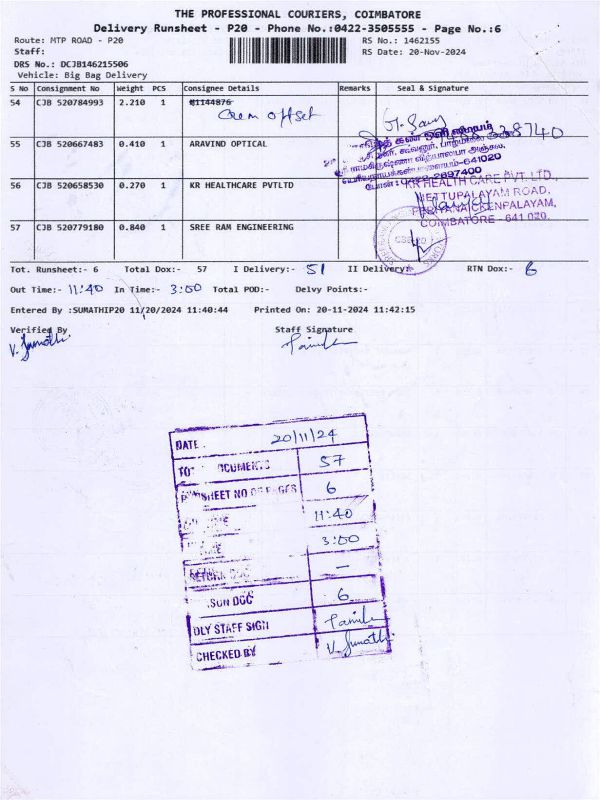 THE PROFESSIONAL COURIERS, COIMBATORE
Delivery Runsheet - P20 - Phone No.:0422-3505555 - Page No.:6
Route: MTP ROAD - P20
RS No.: 1462155
Staff:
RS Date: 20-Nov-2024
DRS No: DCJB146215506
Vehicle: Big Bag Delivery
S No Consignment No Weight PCS Consignee Details Remarks Seal & Signature
54 CJB 520784993 2.210 1
offset
55 CJB 520667483 0.410 1 ARAVIND OPTICAL
641020
56 CJB 520658530 0.270 1 KR HEALTHCARE PVTLTD
KR HEALTH CARE PVT. LTD.
METTUPALAYAM ROAD,
PERIYANAICKENPALAYAM,
COIMBATORE - 641 020.
57 CJB 520779180 0.840 1 SREE RAM ENGINEERING
Tot. Runsheet:- 6 Total Dox:- 57 I Delivery:- 51 II Delivery:- RTN Dox:- 6
Out Time:- 11:40 In Time:- 3:00 Total POD:- Delvy Points:-
Entered By :SUMATHIP20 11/20/2024 11:40:44 Printed On: 20-11-2024 11:42:15
Verified By Staff Signature
V. Sumathi
DATE 20/11/24
57
6
11:40
3:00
—
6
DLY STAFF SIGN
CHECKED BY V. Sumathi